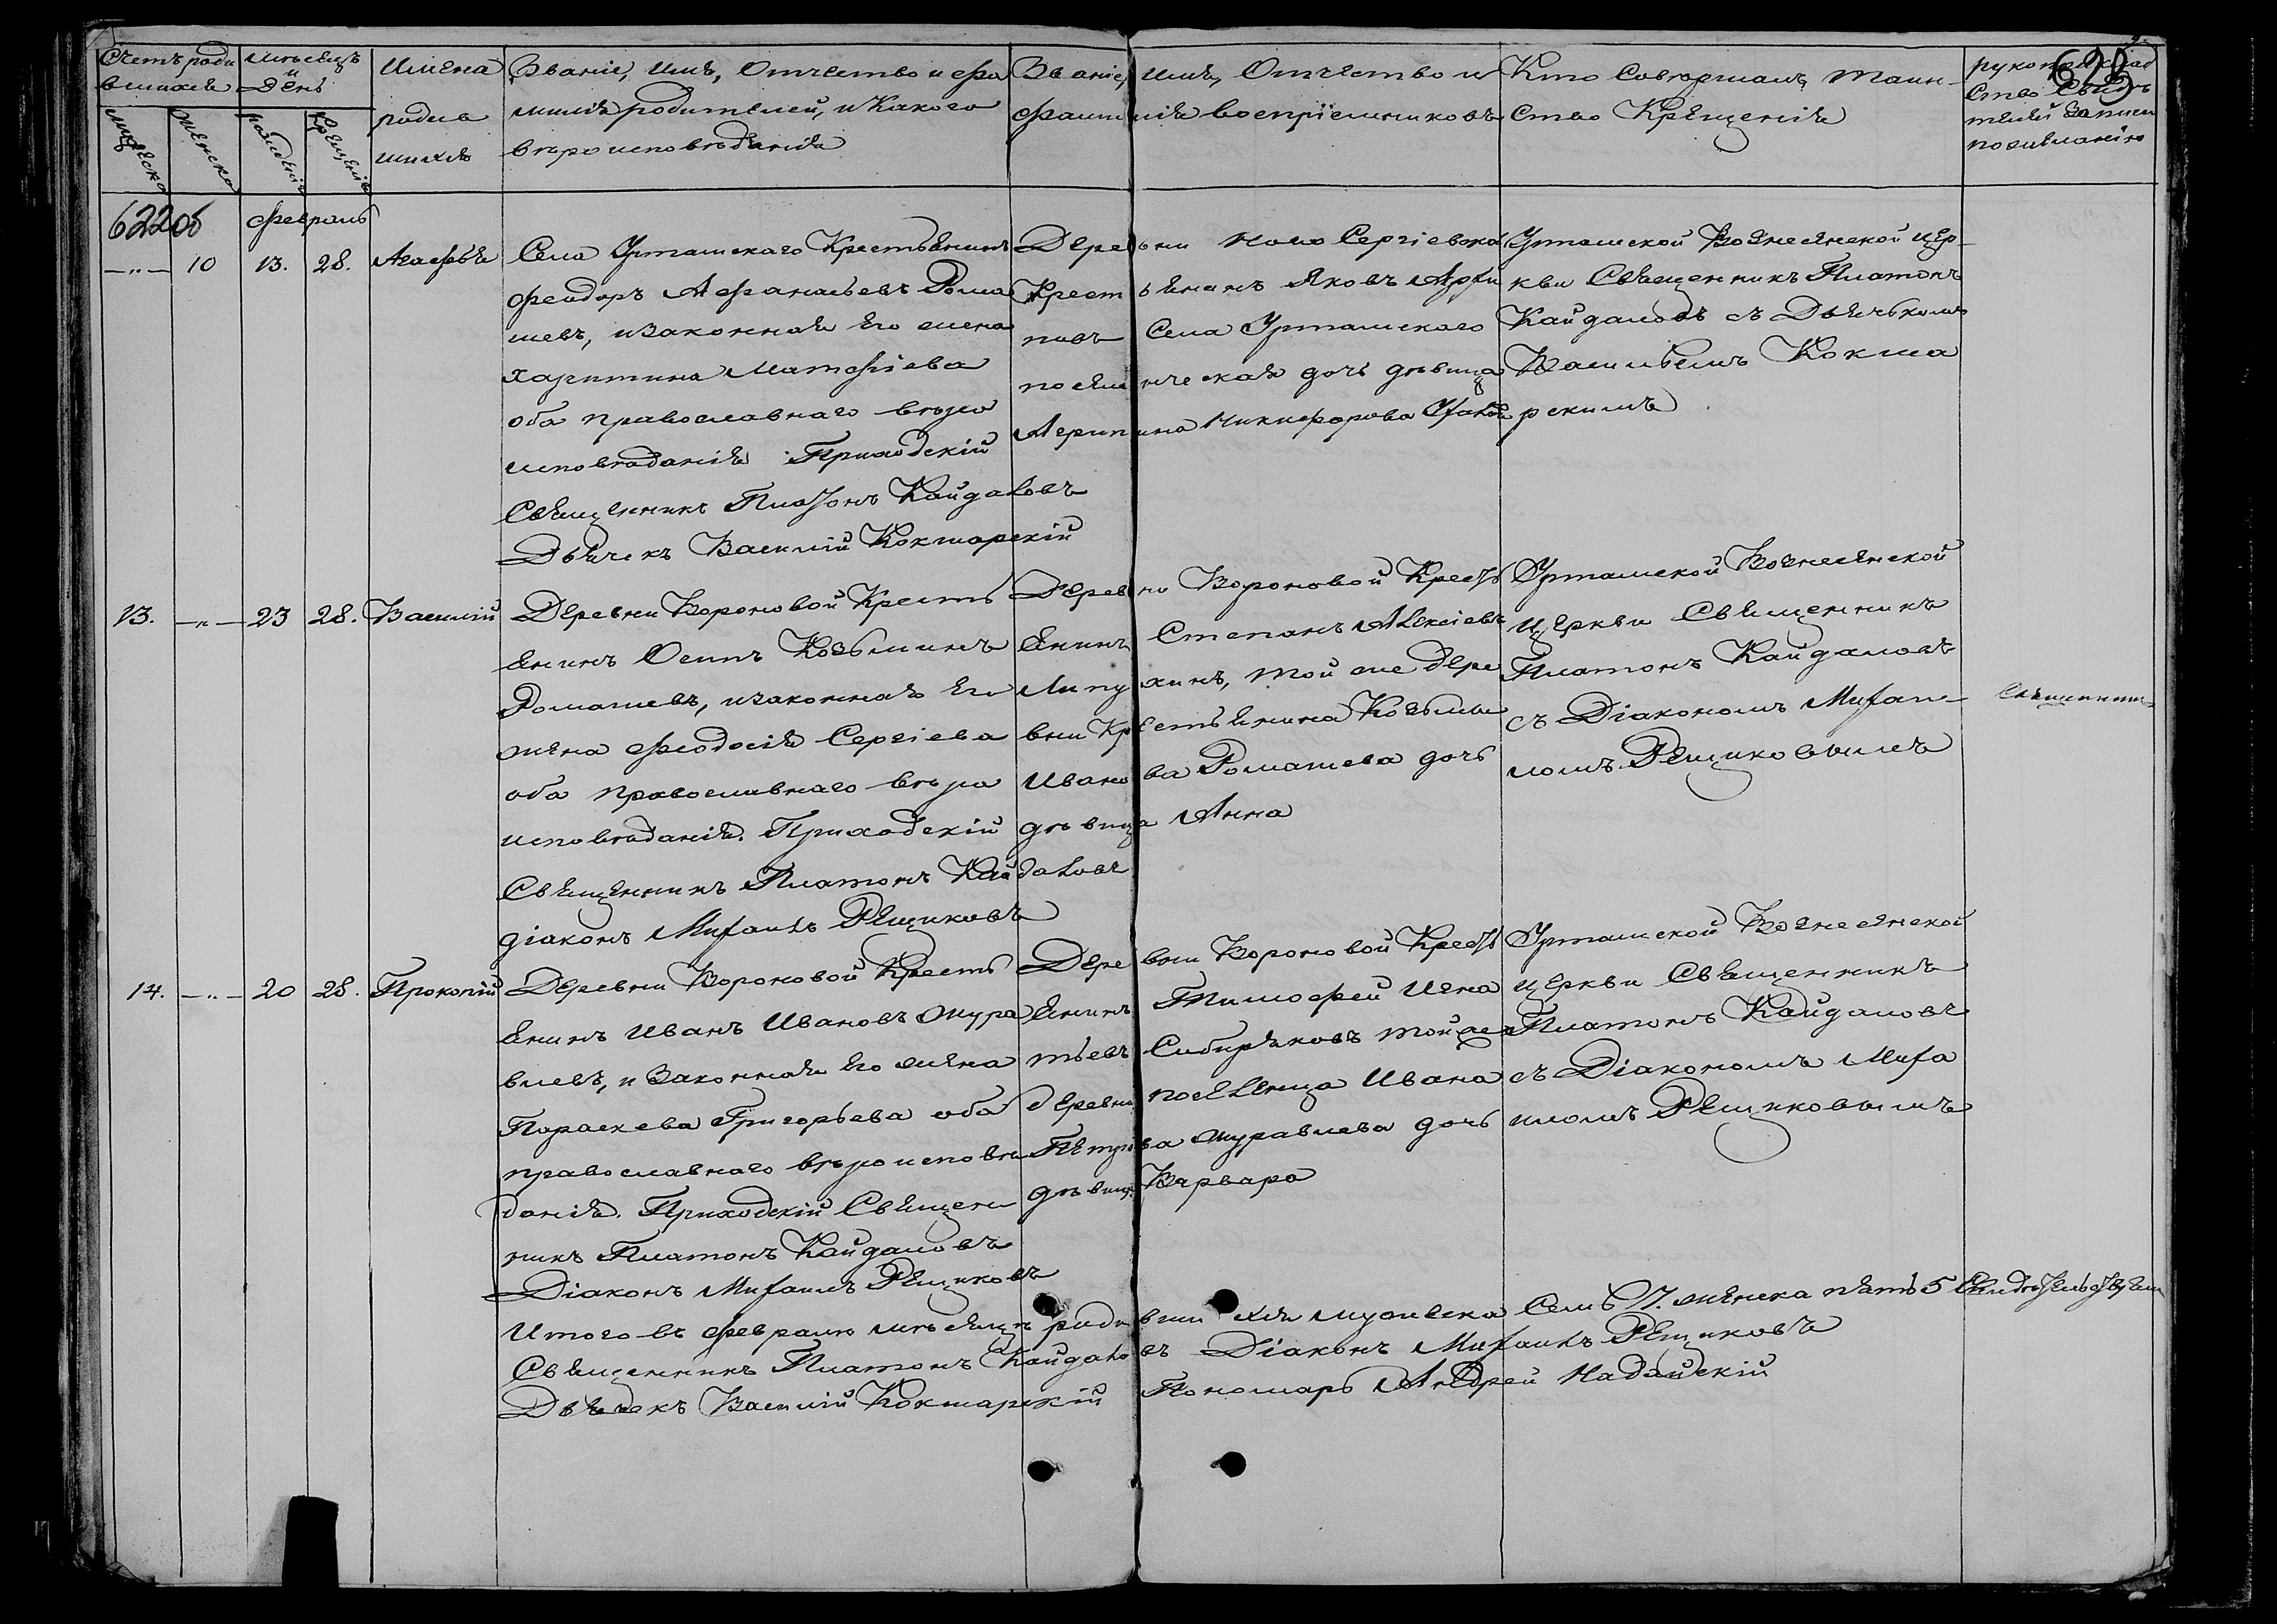 623
Счетъ роди
вшихся
мужеска
женска
мѣсяцъ
и
день
рожденія
крещенія
Имена
родив
шихся
Званіе, имя, отчество и фа
милія родителей, и какого
вѣроисповѣданія
Званіе, имя, Отчество и
фамилія воспріемниковъ
Кто Совершалъ таин-
ство Крещенія
рукоприклад
ство Свидѣ
телей записи
по желанію
622об
февраль
—"— 10 13. 28. Агафья
Села Уртамскаго Крестьянинъ
Феодоръ Афанасьевъ Рома
шевъ, и законная его жена
Харитина Матфіева
оба православнаго вѣро
исповѣданія Приходскій
Священникъ Платонъ Кайдаловъ
Дьячекъ Василій Кокшарскій
Деревни Ново Сергіевской
Крестьянинъ Яковъ
повъ Села Уртамскаго
дочь дѣвица
Агрипина Никифорова
Уртамской Вознесенской цер-
кви Священникъ Платонъ
Кайдаловъ съ Дьячькомъ
Васильемъ Кокша
рскимъ
13. —"— 23 28. Василій
Деревни Вороновой Кресть
янинъ Осипъ Козьминъ
Ромашевъ, и законная Его
жена Феодосія Сергіева
оба православнаго вѣро
исповѣданія. Приходскій
Священникъ Платонъ Кайдаловъ
діаконъ Михаилъ Рещиковъ
Деревни Вороновой Кресть
янинъ Степанъ Алексіевъ
Липухинъ, той же дере
вни Крестьянина Козьмы
Иванова Ромашева дочь
дѣвица Анна
Уртамской Вознесенской
церкви Священникъ
Платонъ Кайдаловъ
съ Діакономъ Михаи-
ломъ Рещиковымъ
14. —"— 20 28. Прокопій
Деревни Вороновой Кресть
янинъ Иванъ Ивановъ Жура
влевъ, и Законная его жена
Параскева Григорьева оба
православнаго вѣроисповѣ
данія. Приходскій Священ
никъ Платонъ Кайдаловъ
Діаконъ Михаилъ Рещиковъ
Деревни Вороновой Кресть
янинъ Тимофей Игна
тьевъ Сибиряковъ той же
деревни поселенца Ивана
Петрова Журавлева дочь
дѣвица Варвара
Уртамской Вознесенской
церкви Священникъ
Платонъ Кайдаловъ
съ Діакономъ Миха
иломъ Рещиковымъ
Итого въ февралѣ мѣсяцѣ родившихся мужеска Семь 7. женска пять 5 Свидѣтельствуемъ
Священникъ Платонъ Кайдаловъ Діаконъ Михаилъ Рещиковъ
Дьячекъ Василій Кокшарскій Пономарь Андрей Надайскій